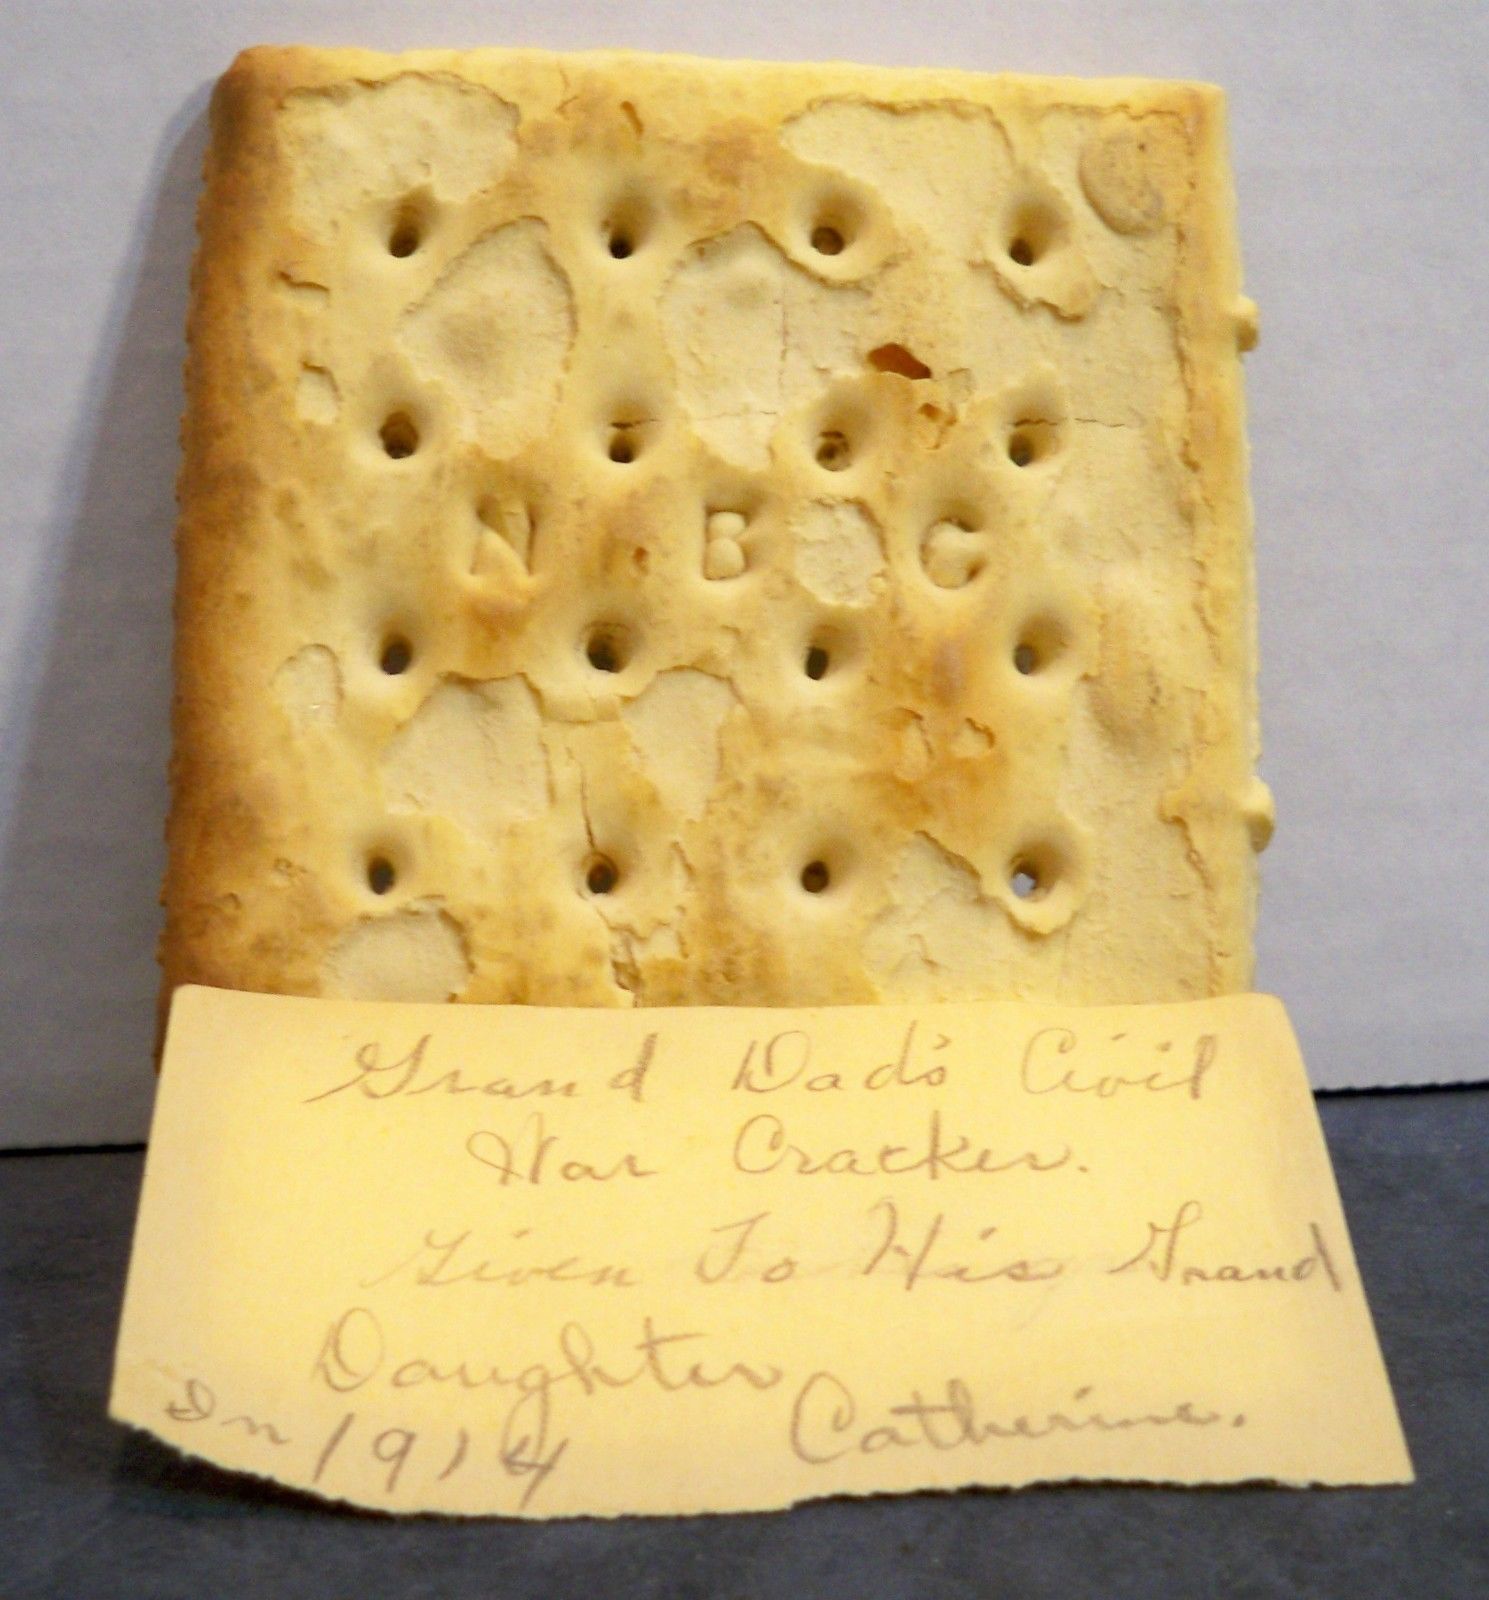 N B C
Grand Dad's Civil
War Cracker.
Given To His Grand
Daughter
Catherine.
In 1914